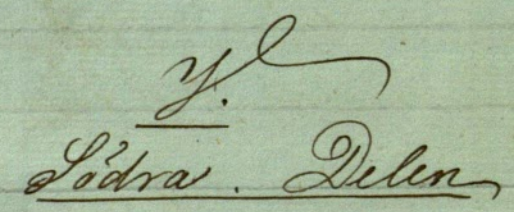 Y.
Södra. Delen